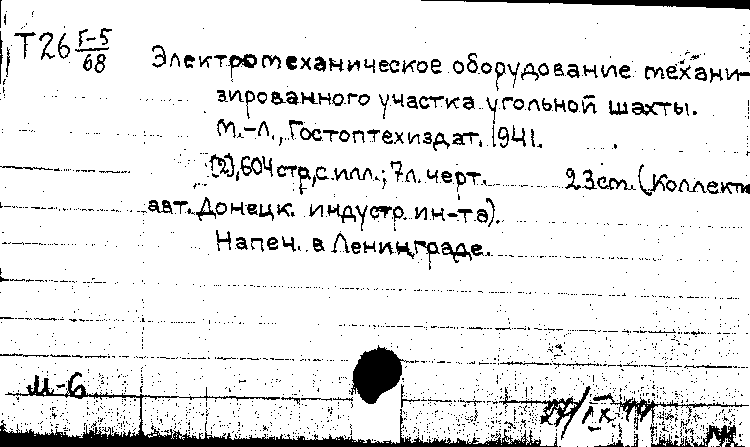 Т26 Г-5/68
Электромеханическое оборудование механи-
зированного участка угольной шахты.
М.-Л., Гостоптехиздат. 1941.
(2), 604 стр. с илл.; 7 л. черт. 23 cm. (Коллекти
авт. Донецк. индустр. ин-та).
Напеч. в Ленинграде.
М-6
27/IX